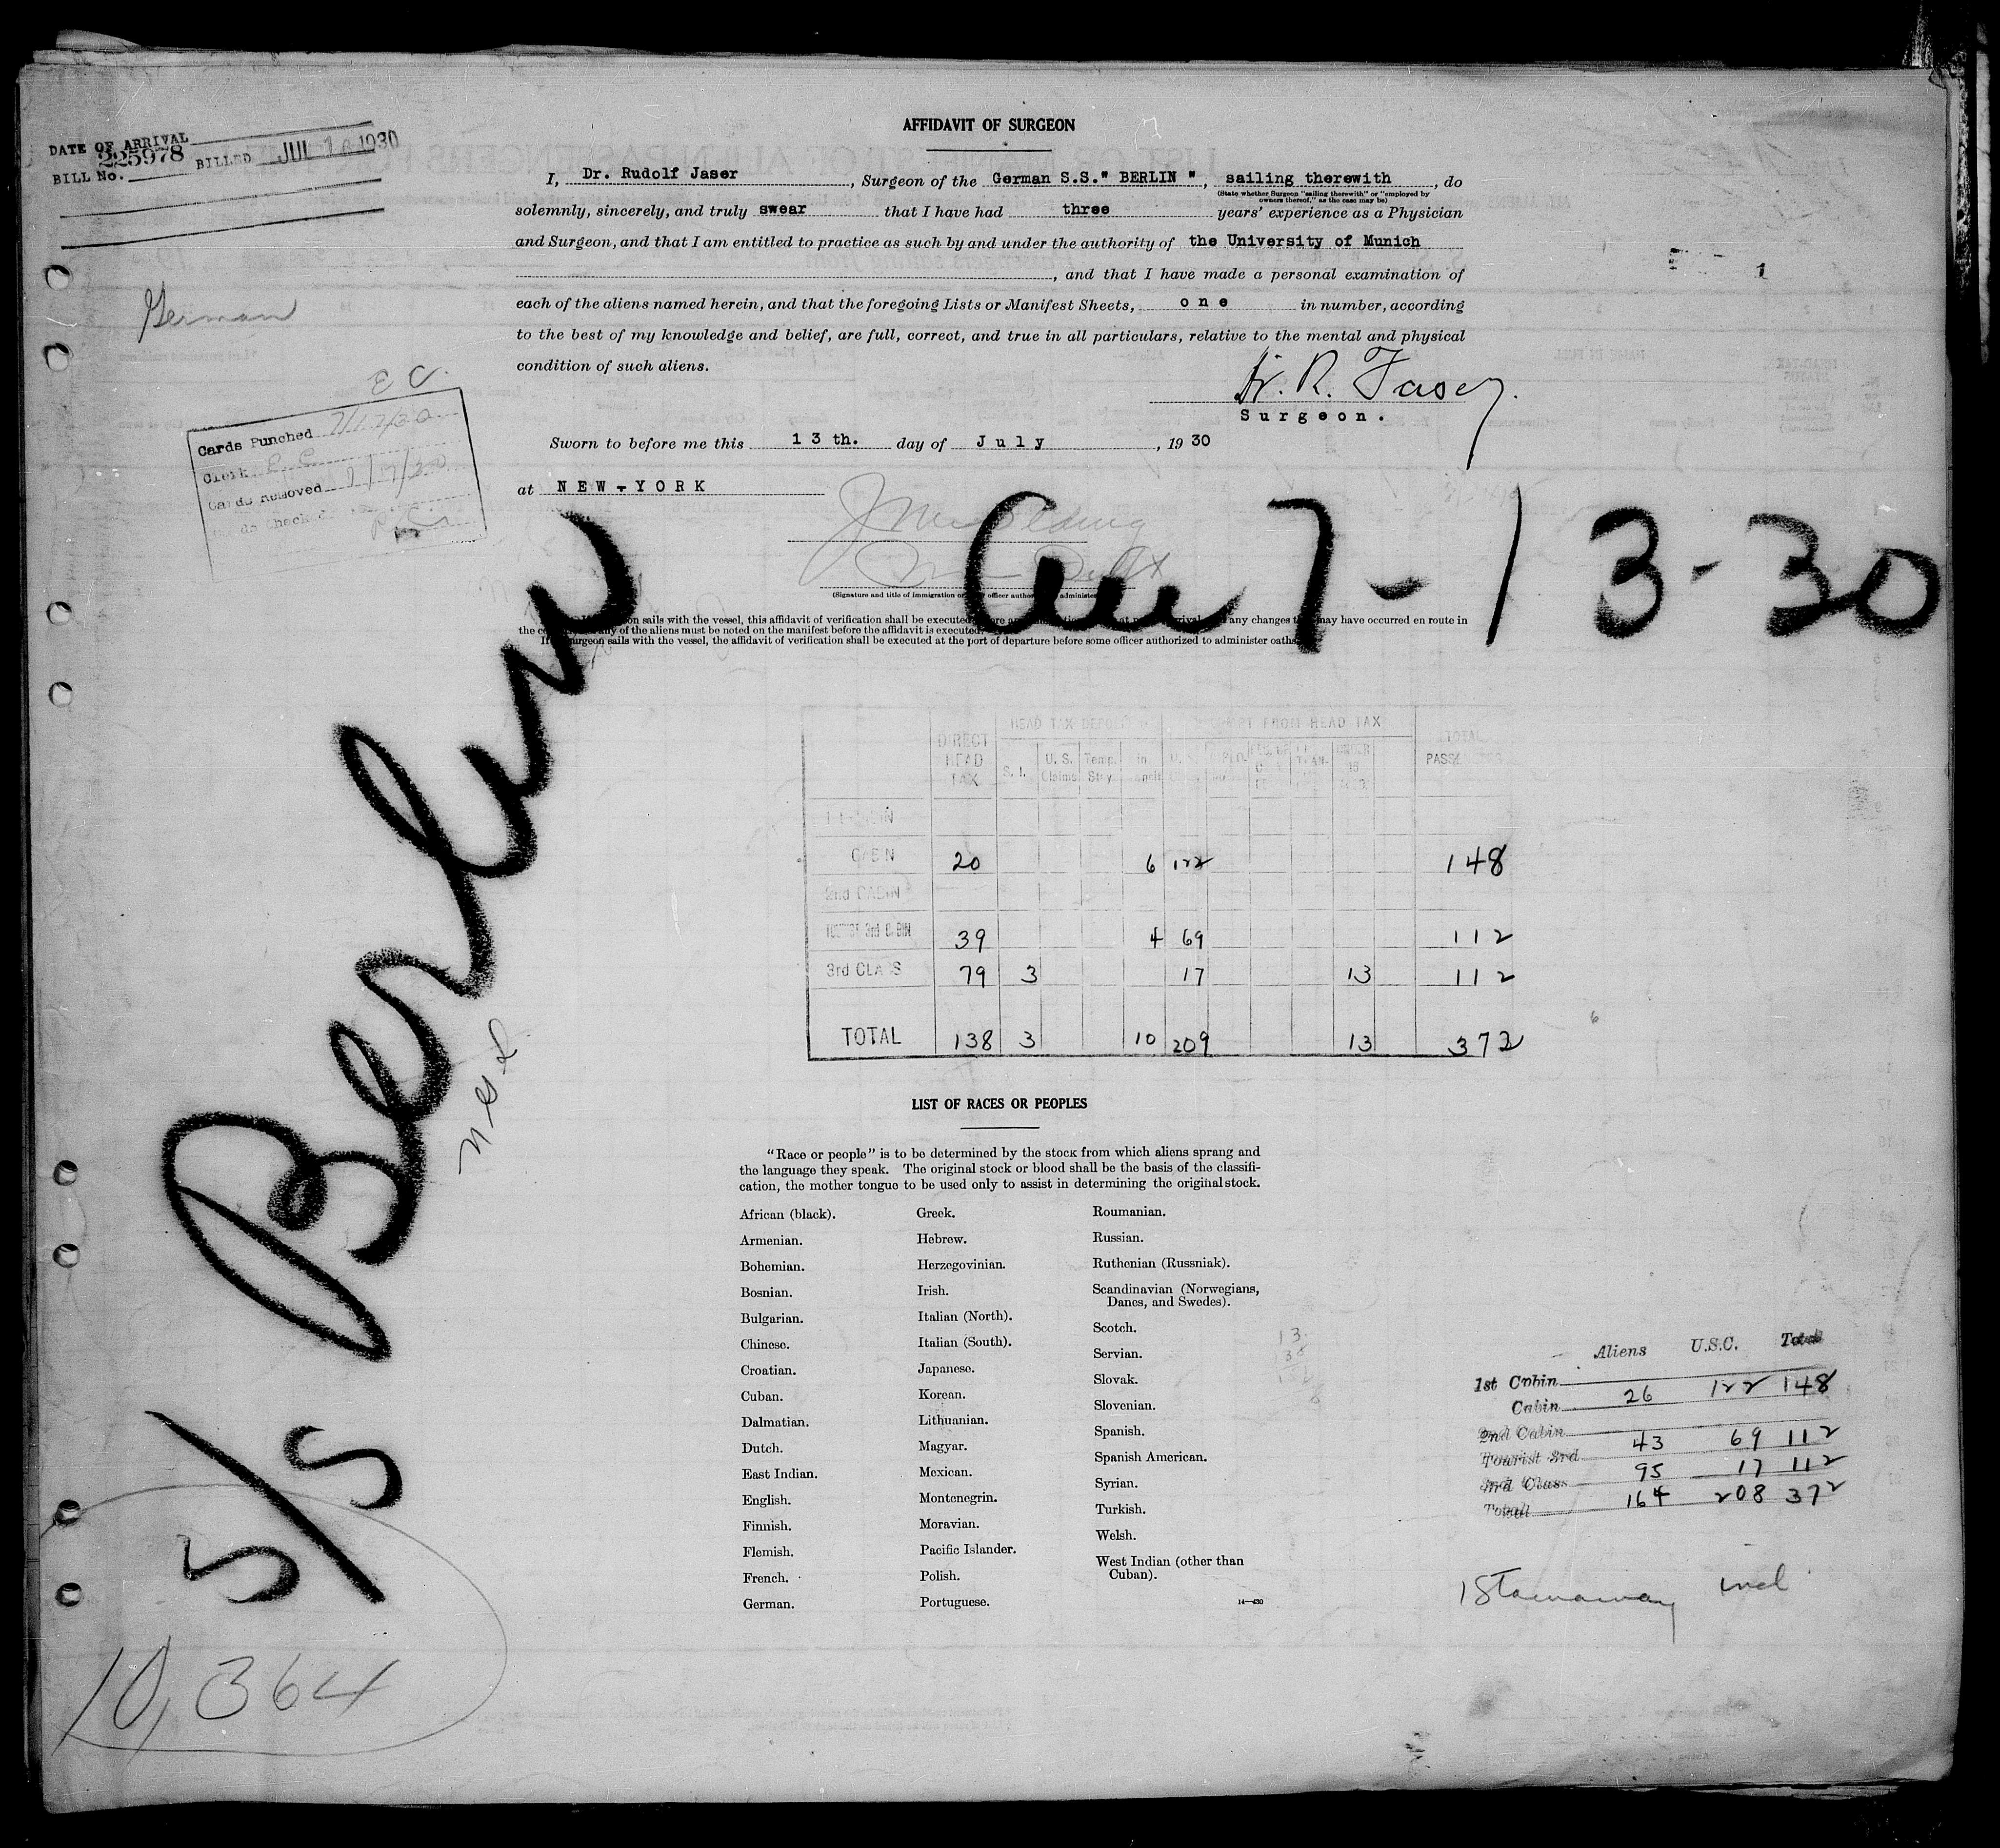 AFFIDAVIT OF SURGEON
DATE OF ARRIVAL
225978 BILLED JUL 16 1930
BILL No.
I, Dr. Rudolf Jaser, Surgeon of the German S.S." BERLIN ", sailing therewith, do
(State whether Surgeon "sailing therewith" or "employed by
owners thereof," as the case may be)
solemnly, sincerely, and truly swear that I have had three years' experience as a Physician
and Surgeon, and that I am entitled to practice as such by and under the authority of the University of Munich
, and that I have made a personal examination of
each of the aliens named herein, and that the foregoing Lists or Manifest Sheets, one in number, according
to the best of my knowledge and belief, are full, correct, and true in all particulars, relative to the mental and physical
condition of such aliens.
1
German
Dr. R. Jaser
Surgeon.
E C.
Cards Punched 7/17/30
Clerk E C
Cards Removed 7/17/30
do Checked
Sworn to before me this 13th. day of July, 1930
at NEW-YORK
Arr 7-13-30
(Signature and title of immigration officer
sails with the vessel, this affidavit of verification shall be executed any changes may have occurred en route in
any of the aliens must be noted on the manifest before the affidavit is executed.
surgeon sails with the vessel, the affidavit of verification shall be executed at the port of departure before some officer authorized to administer oaths.
S/S Berlin
10,364
HEAD TAX DEPOSIT FROM HEAD TAX
DIRECT HEAD TAX S. I. U. S. Claims Temp. Stay In UNDER 16 TOTAL
CABIN 20 6 122 148
2nd CABIN
TOURIST 3rd CABIN 39 4 69 112
3rd CLASS 79 3 17 13 112
TOTAL 138 3 10 209 13 372
LIST OF RACES OR PEOPLES
"Race or people" is to be determined by the stock from which aliens sprang and
the language they speak. The original stock or blood shall be the basis of the classifi-
cation, the mother tongue to be used only to assist in determining the original stock.
African (black).
Armenian.
Bohemian.
Bosnian.
Bulgarian.
Chinese.
Croatian.
Cuban.
Dalmatian.
Dutch.
East Indian.
English.
Finnish.
Flemish.
French.
German.
Greek.
Hebrew.
Herzegovinian.
Irish.
Italian (North).
Italian (South).
Japanese.
Korean.
Lithuanian.
Magyar.
Mexican.
Montenegrin.
Moravian.
Pacific Islander.
Polish.
Portuguese.
Roumanian.
Russian.
Ruthenian (Russniak).
Scandinavian (Norwegians,
Danes, and Swedes).
Scotch.
Servian.
Slovak.
Slovenian.
Spanish.
Spanish American.
Syrian.
Turkish.
Welsh.
West Indian (other than
Cuban).
14—430
Aliens U.S.C. Total
1st Cabin
Cabin 26 122 148
2nd Cabin
Tourist 3rd 43 69 112
3rd Class 95 17 112
Total 164 208 372
1 Stowaway incl